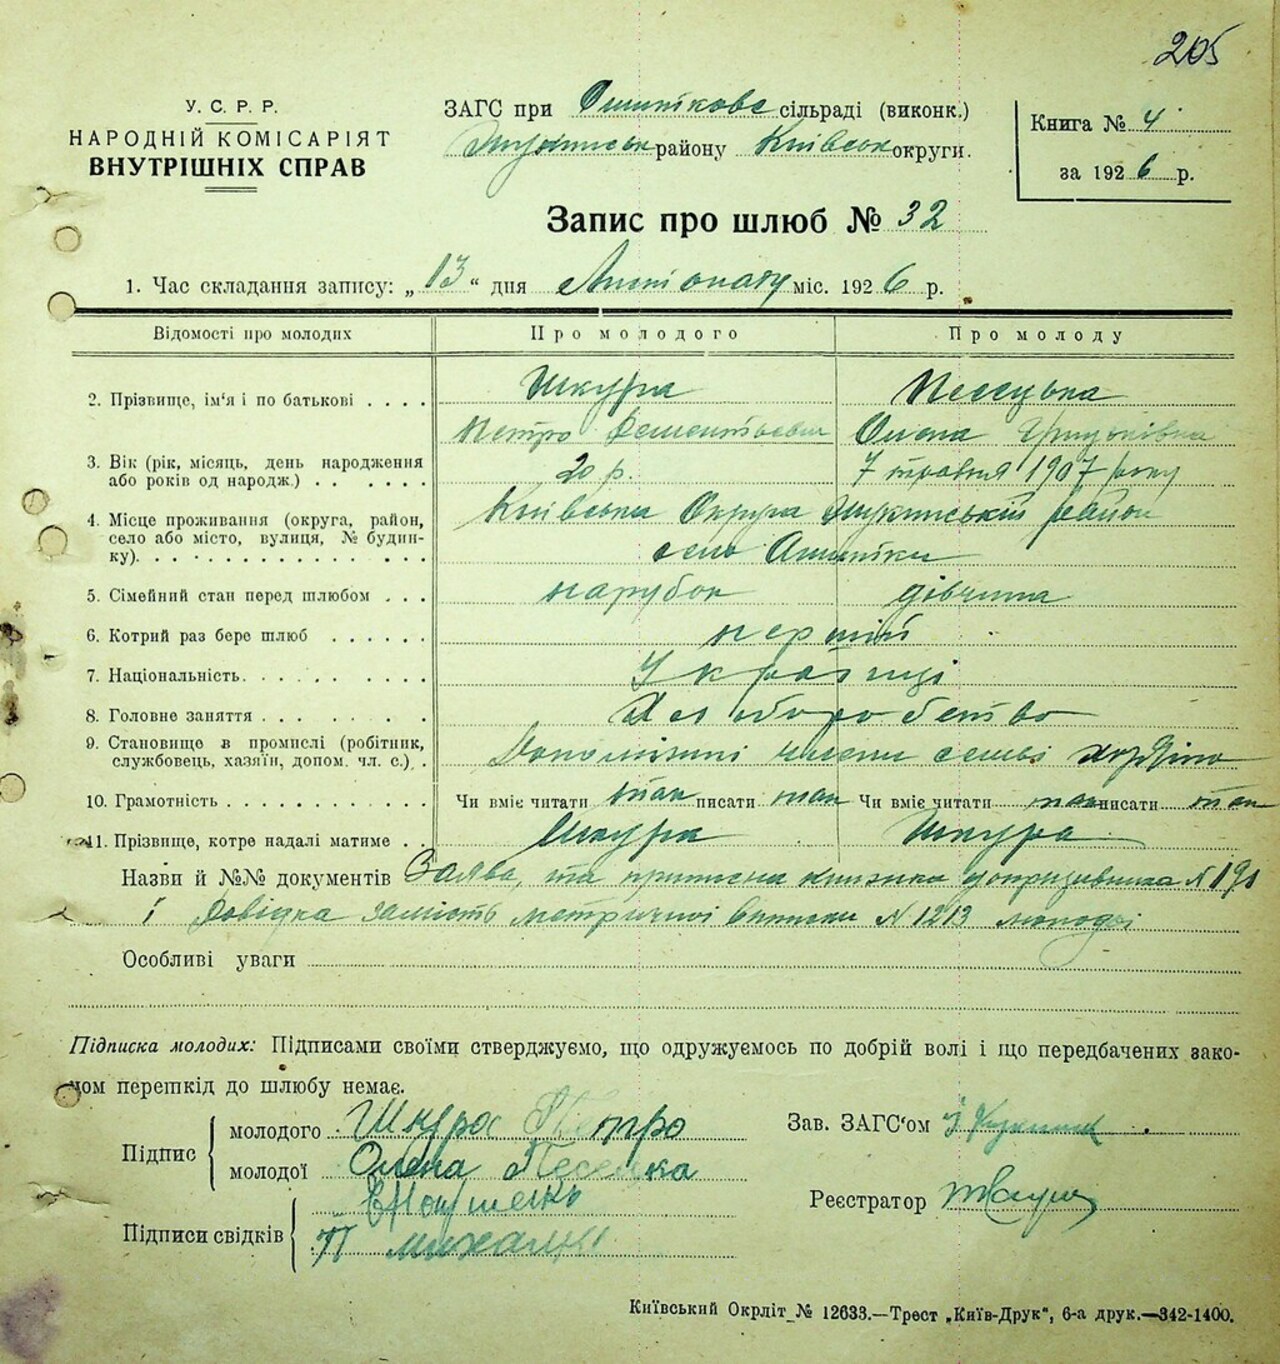 205
У. С. Р. Р.
НАРОДНІЙ КОМІСАРІЯТ
ВНУТРІШНІХ СПРАВ
ЗАГС при сільраді (виконк.)
району Київськ округи.
Книга № 4
за 1926 р.
Запис про шлюб № 32
1. Час складання запису: „13“ дня Листопаду міс. 1926 р.
Відомості про молодих Про молодого Про молоду
2. Прізвище, ім'я і по батькові . . . . Шкура Песецька
Петро Олена Грицьківна
3. Вік (рік, місяць, день народження або років од народж.) . . . . . . 20 р. 7 травня 1907 року
4. Місце проживання (округа, район, село або місто, вулиця, № будинку). . . . . . . . . . . . Київська Округа район
село
5. Сімейний стан перед шлюбом . . . парубок дівчина
6. Котрий раз бере шлюб . . . . . . перший
7. Національність. . . . . . . . . Українці
8. Головне заняття . . . . . . . . Хліборобство
9. Становище в промислі (робітник, службовець, хазяїн, допом. чл. с.) . Допоміжні члени семьі
10. Грамотність . . . . . . . . . . . Чи вміє читати так писати так Чи вміє читати так писати так
11. Прізвище, котре надалі матиме . . Шкура Шкура
Назви й №№ документів Заява, та приписна книжка допризивника N 190
і довідка замість метричної виписки N 1213 молодої
Особливі уваги
Підписка молодих: Підписами своїми стверджуємо, що одружуємось по добрій волі і що передбачених зако-
ном перешкід до шлюбу немає.
Підпис молодого Шкура Петро
молодої Олена Песецка
Підписи свідків
Зав. ЗАГС'ом
Реєстратор
Київський Окрліт № 12633.—Трест „Київ-Друк“, 6-а друк.—342-1400.